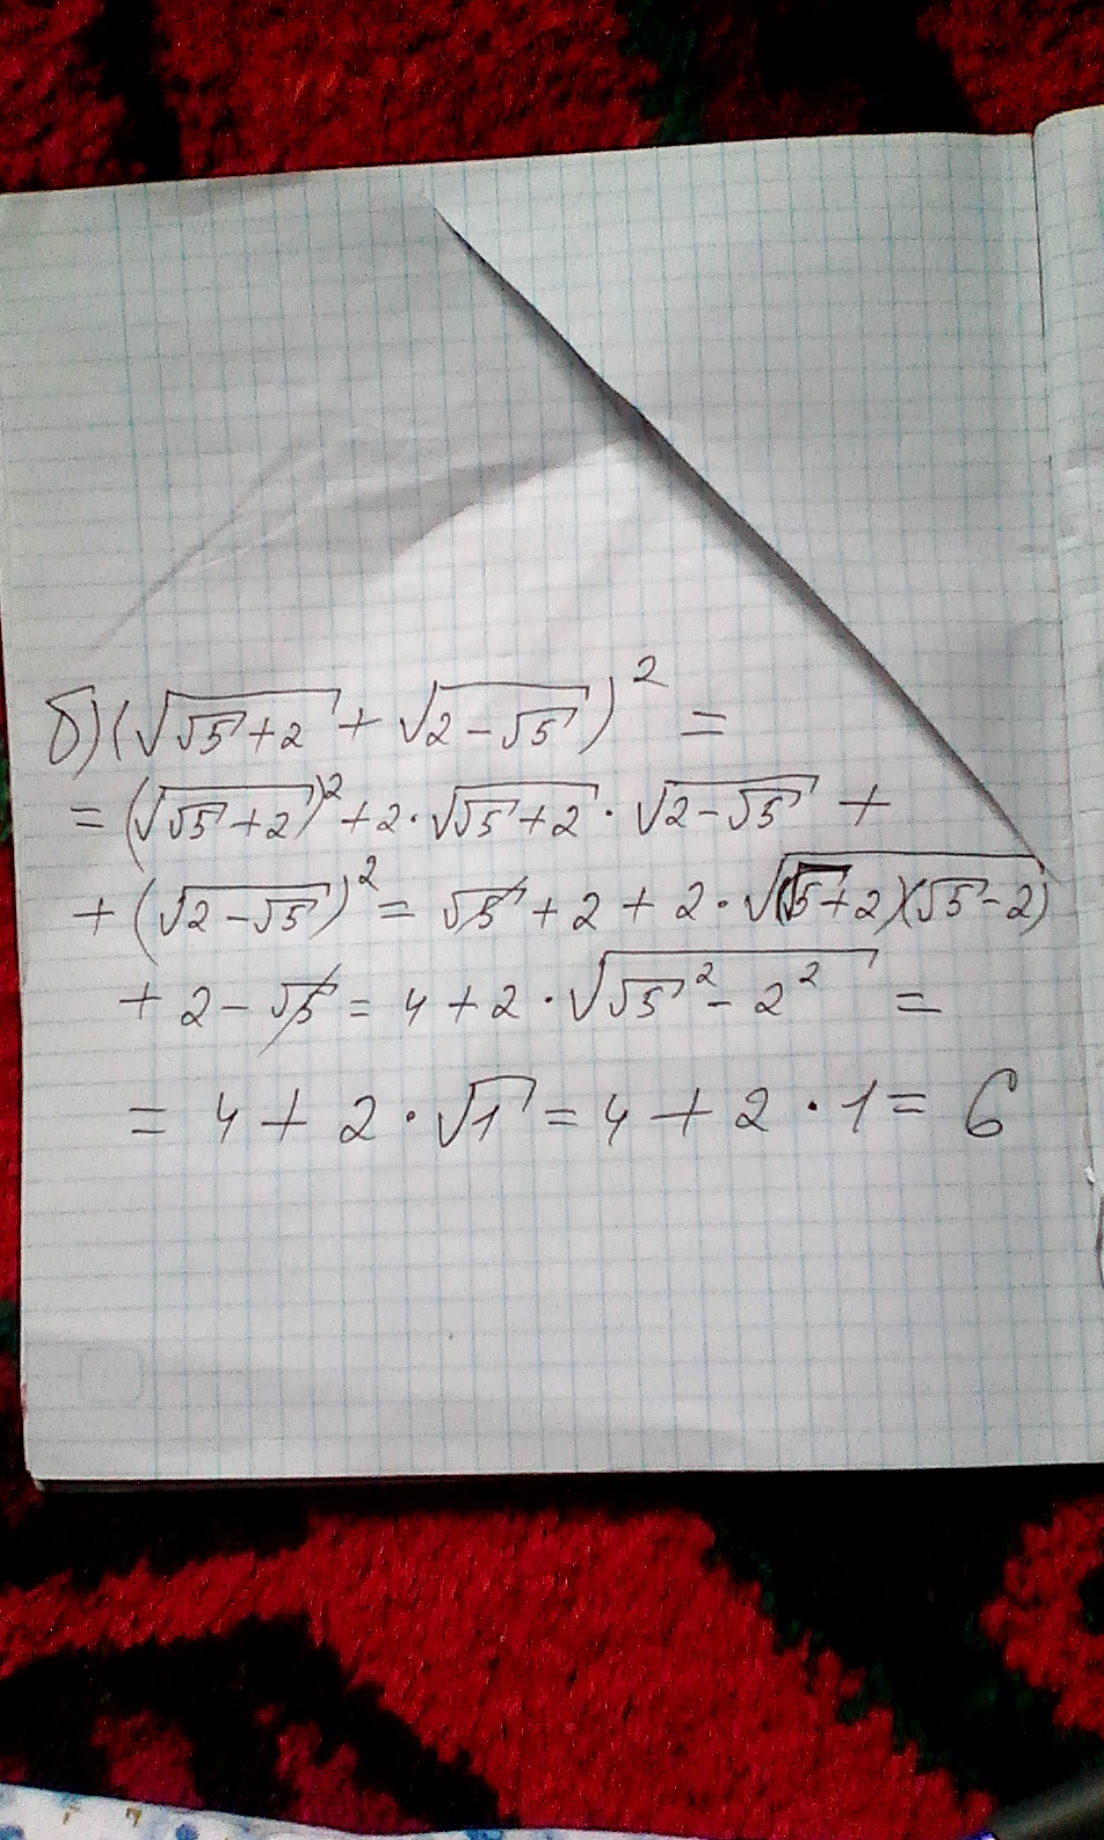 б) (√(√5+2) + √(2-√5))² =
= (√(√5+2))² + 2·√(√5+2) · √(2-√5) +
+ (√(2-√5))² = √5 + 2 + 2·√((√5+2)(√5-2))
+ 2 - √5 = 4 + 2·√(√5² - 2²) =
= 4 + 2·√1 = 4 + 2·1 = 6